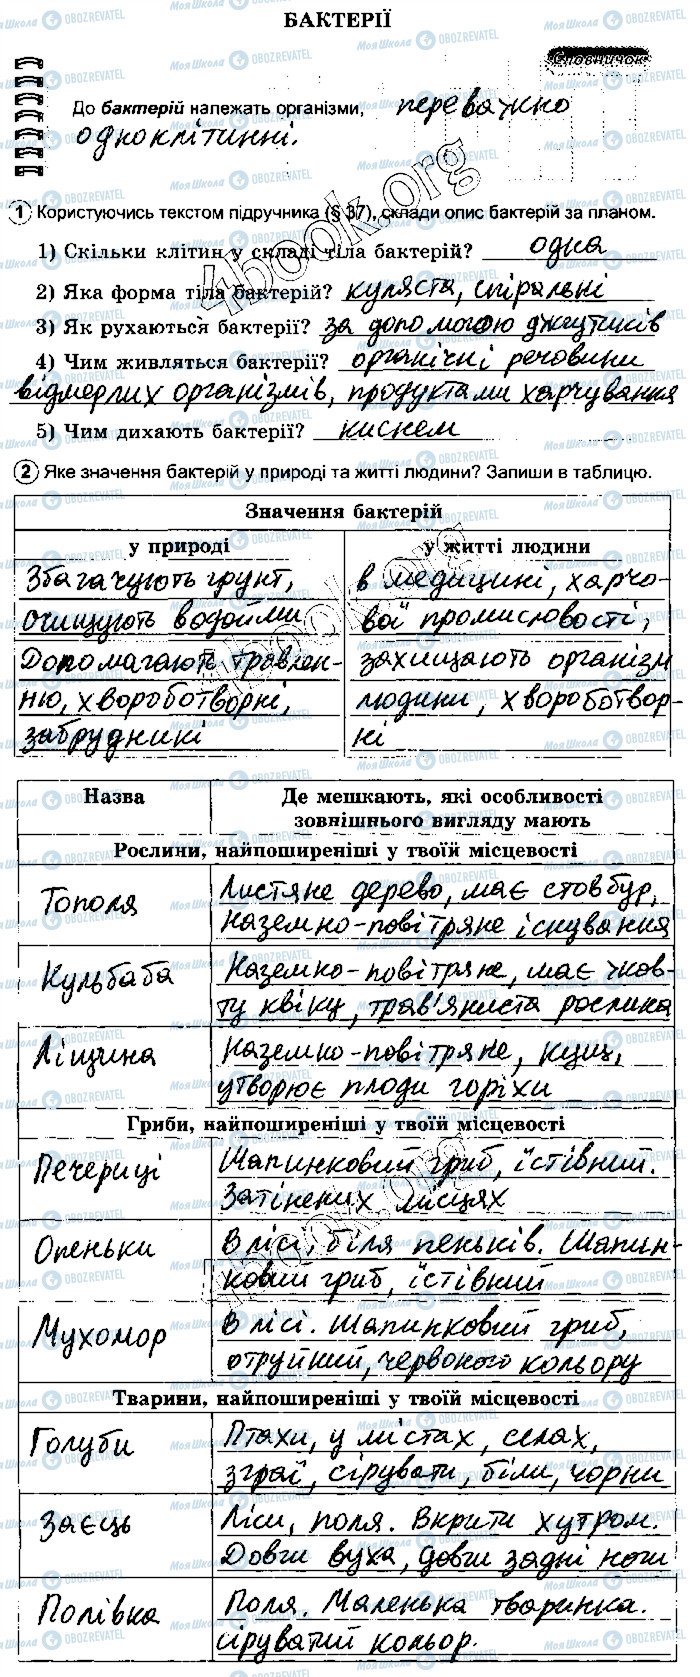 БАКТЕРІЇ
Словничок
До бактерій належать організми, переважно
одноклітинні.
1 Користуючись текстом підручника (§ 37), склади опис бактерій за планом.
1) Скільки клітин у складі тіла бактерій? одна
2) Яка форма тіла бактерій? куляста, спіральні
3) Як рухаються бактерії? за допомогою джгутиків
4) Чим живляться бактерії? органічні речовини
відмерлих організмів, продуктами харчування
5) Чим дихають бактерії? киснем
2 Яке значення бактерій у природі та житті людини? Запиши в таблицю.
Значення бактерій
у природі
у житті людини
Збагачують грунт,
очищують водойми
Допомагають травлен-
ню, хвороботворні,
забрудникі
в медицині, харчо-
вої промисловості,
захищають організм
людини, хвороботвор-
ні
Назва
Де мешкають, які особливості
зовнішнього вигляду мають
Рослини, найпоширеніші у твоїй місцевості
Тополя
Листяне дерево, має стовбур,
наземно-повітряне існування
Кульбаба
Наземно-повітряне, має жов-
ту квіку, трав'яниста рослина
Ліщина
Наземно-повітряне, кущ,
утворює плоди горіхи
Гриби, найпоширеніші у твоїй місцевості
Печериці
Шапинковий гриб, їстівний.
Затінених місцях
Опеньки
В лісі, біля пеньків. Шапин-
ковий гриб, їстівний
Мухомор
В лісі. Шапинковий гриб,
отруйний, червоного кольору
Тварини, найпоширеніші у твоїй місцевості
Голуби
Птахи, у містах, селах,
зграї, сірувати, біли, чорни
Заєць
Ліси, поля. Вкрити хутром.
Довги вуха, довги задні ноги
Полівка
Поля. Маленька тваринка.
сіруватий кольор.